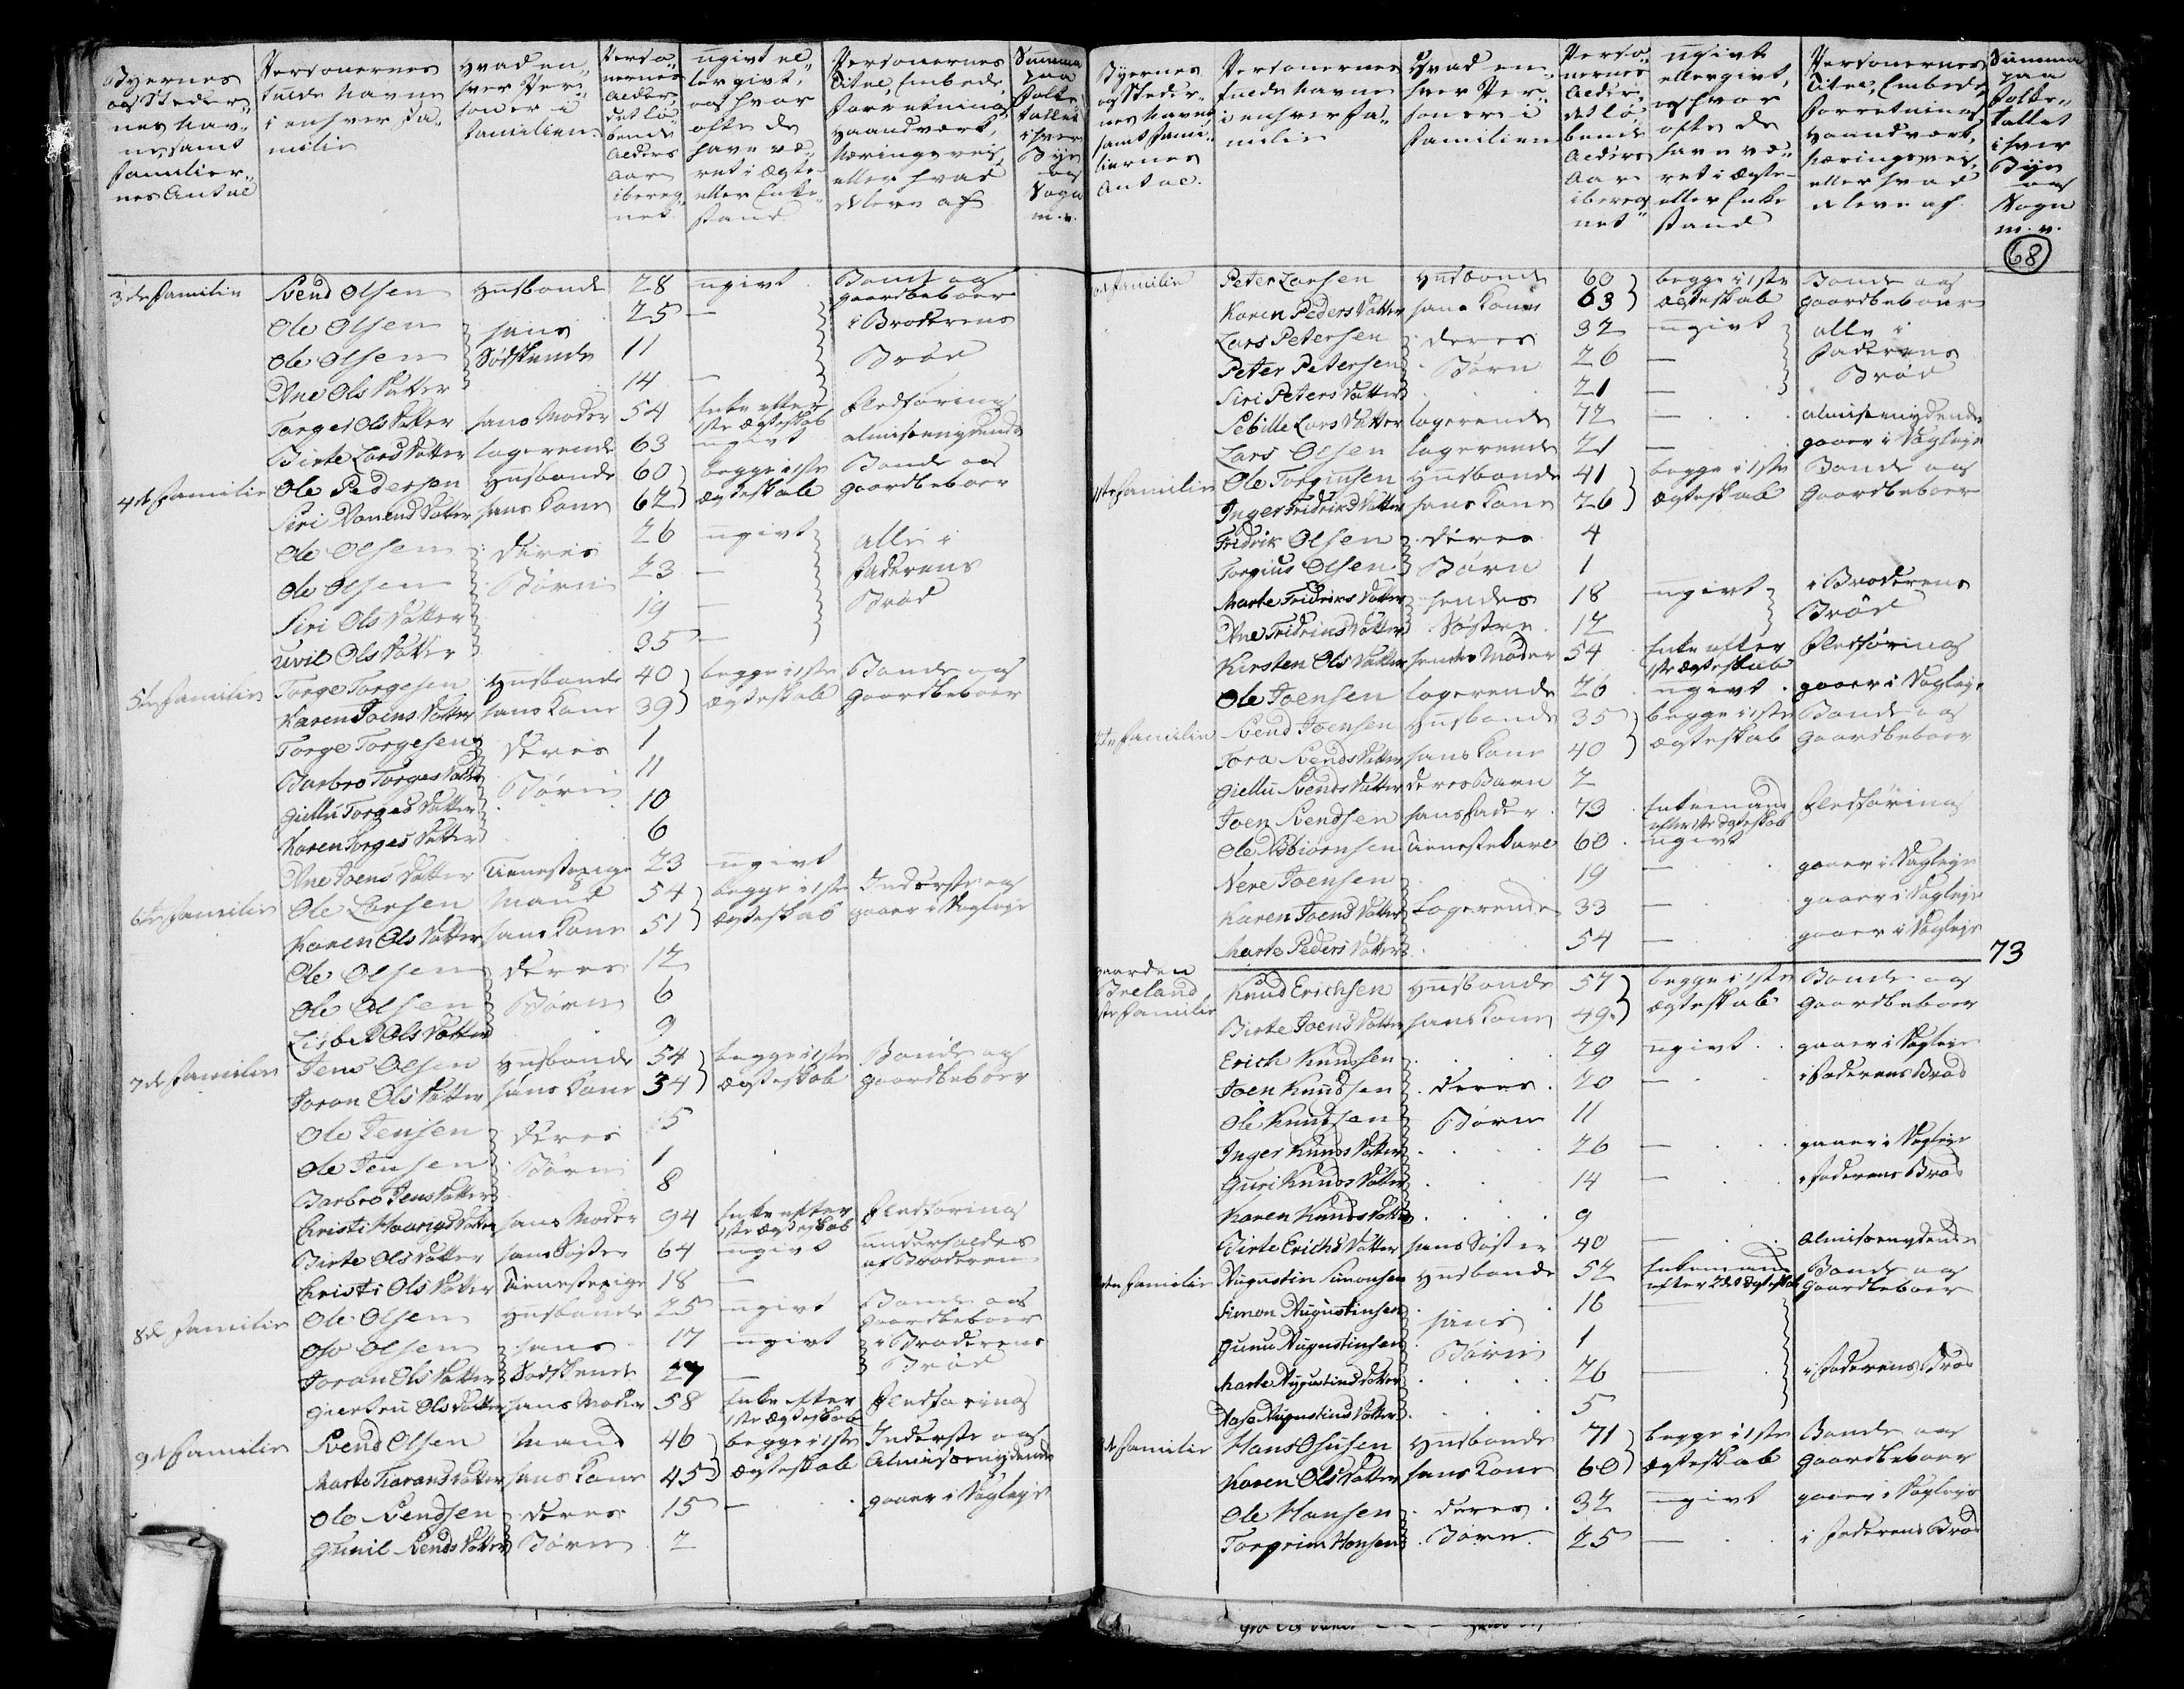 Byernes og Steder- nes Nav- ne, samt Familier- nes Antal
Personernes fulde Navne i enhver Fa- milie
Hvad en- hver Per- son er i Familien
Perso- nernes Alder, det lø- bende Alders Aar ibereg- net
ugivt el- ler givt, og hvor ofte de have væ- ret i Ægte- eller Enke- stand
Personernes Titel, Embede, Forretning, Haandværk, Næringsvei, eller hvad de leve af
Summa paa Folke- Tallet i hver Bye og Sogn m. v.
3de Familie Svend Olsen Husbonde 28 ugivt Bonde og Gaardbeboer
Ole Olsen hans 25 — i Broderens
Ole Olsen Södskende 11 Bröd
Ane Ols Datter 14 —
Torger Ols Datter hans Moder 54 Enke efter 1ste Ægteskab Fledföring
Birte Lars Datter logerende 63 ugivt almisenydende
4de Familie Ole Pedersen Husbonde 60 begge i 1ste Bonde og
Siri Datter hans Kone 62 Ægteskab Gaardbeboer
Ole Olsen deres 26 ugivt alle i
Ole Olsen Börn 23 — Faderens
Siri Ols Datter 19 — Bröd
Uvil Ols Datter 35 —
5te Familie Torge Torgesen Husbonde 40 begge i 1ste Bonde og
Karen Joens Datter hans Kone 39 Ægteskab Gaardbeboer
Torge Torgesen deres 1
Barbro Torges Datter Börn 11
Giellu Torges Datter 10
Karen Torges Datter 6
Ane Joens Datter Tienestepige 23 ugivt
6te Familie Ole Larsen Mand 54 begge i 1ste Inderste og
Karen Ols Datter hans Kone 51 Ægteskab gaaer i Dagleje
Ole Olsen deres 12
Ole Olsen Börn 6
Lisbet Ols Datter 9
7de Familie Jens Olsen Husbonde 54 begge i 1ste Bonde og
Joran Ols Datter hans Kone 34 Ægteskab Gaardbeboer
Ole Jensen deres 5
Ole Jensen Börn 1
Barbro Jens Datter 8
Christi Datter hans Moder 94 Enke efter 1ste Ægteskab Fledföring
Birte Ols Datter hans Söster 64 ugivt underholdes af Broderen
Christi Ols Datter Tienestepige 18 —
8de Familie Ole Olsen Husbonde 25 ugivt Bonde og Gaardbeboer
Oso Olsen hans 17 ugivt i Broderens
Joran Ols Datter Södskende 27 — Bröd
Giertru Ols Datter hans Moder 58 Enke efter 1ste Ægteskab Fledföring
9de Familie Svend Olsen Mand 46 begge i 1ste Inderste og
Marte Datter hans Kone 45 Ægteskab Almisenydende
Ole Svendsen deres 15 — gaaer i Dagleje
Gunil Svends Datter Börn 2
Byernes og Steder- nes Navne samt Fami- liernes Antal.
Personernes fulde Navne i enhver Fa- milie
Hvad en- hver Per- son er i Familien
Perso- nernes Alder, det lø- bende Alders Aar ibereg- net
ugivt eller givt, og hvor ofte de have væ- ret i Ægte- eller Enke stand
Personernes Titel, Embede Forretning Haandværk, Næringsvei, eller hvad de leve af.
Summa paa Folke- tallet i hver Bye og Sogn m. v.
68
Familie Peter Larsen Husbonde 60 begge i 1ste Bonde og
Karen Peders Datter hans Kone 63 Ægteskab Gaardbeboer
Lars Petersen deres 32 ugivt alle i
Peter Petersen Börn 26 — Faderens
Siri Peters Datter 21 — Bröd
Sebille Lars Datter logerende 72 — almisenydende
Lars Olsen logerende 21 — gaaer i Dagleje
Familie Ole Torginsen Husbonde 41 begge i 1ste Bonde og
Inger Fridriks Datter hans Kone 26 Ægteskab Gaardbeboer
Fridrik Olsen deres 4
Torgius Olsen Börn 1
Marte Fridriks Datter hendes 18 ugivt i Broderens
Ane Fridriks Datter Söstre 12 Bröd
Kirsten Ols Datter hendes Moder 54 Enke efter 1ste Ægteskab Fledföring
Ole Joensen logerende 26 ugivt gaaer i Dagleje
Familie Svend Joensen Husbonde 35 begge i 1ste Bonde og
Tora Svends Datter hans Kone 40 Ægteskab Gaardbeboer
Giellu Svends Datter deres Barn 2
Joen Svendsen hans Fader 73 Enkemand efter 1ste Ægteskab Fledföring
Ole Asbiörnsen Tienestekarl 60 ugivt
Nere Joensen 19 — gaaer i Dagleje
Karen Joens Datter Logerende 33 — gaaer i Dagleje
Marte Peders Datter 54 — gaaer i Dagleje
73
Gaarden Breland
1ste Familie Knud Erichsen Husbonde 57 begge i 1ste Bonde og
Birte Joens Datter hans Kone 49 Ægteskab Gaardbeboer
Erich Knudsen 29 ugivt gaaer i Dagleje
Joen Knudsen deres 20 — i Faderens Bröd
Ole Knudsen Börn 11
Inger Knuds Datter 26 — gaaer i Dagleje
Guri Knuds Datter 14 — i Faderens Bröd
Karen Knuds Datter 9
Birte Erichs Datter hans Söster 40 — Almisenydende
Familie Augustin Simonsen Husbonde 52 Enkemand efter 2det Ægteskab Bonde og Gaardbeboer
Simon Augustinsen hans 16 —
Gunu Augustinsen Börn 1
Marte Augustins Datter 26 — i Faderens Bröd
Aase Augustins Datter 5
Familie Hans Osusen Husbonde 71 begge i 1ste Bonde og
Karen Ols Datter hans Kone 60 Ægteskab Gaardbeboer
Ole Hansen deres 32 ugivt gaaer i Dagleje
Torgrim Hansen Börn 25 — i Faderens Bröd